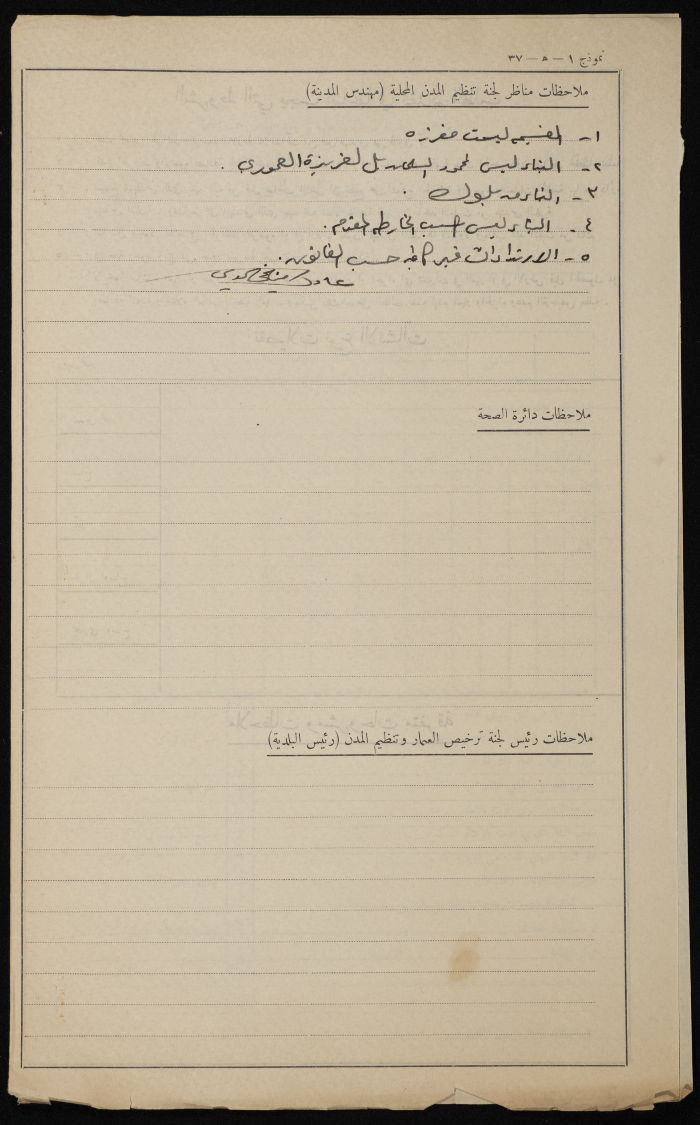 نموذج ١ – ٥ – ٣٧
ملاحظات مناظر لجنة تنظيم المدن المحلية (مهندس المدينة)
١- القسيمه ليست مفرزه
٢- البناء ليس لمحمود السلمه بل لعزيزة العموري .
٣- البناء من بلوك .
٤- البناء ليس حسب الخارطه المقدم .
٥- الارتدادات غير كافيه حسب القانون .
ملاحظات دائرة الصحة
ملاحظات رئيس لجنة ترخيص العمار وتنظيم المدن (رئيس البلدية)